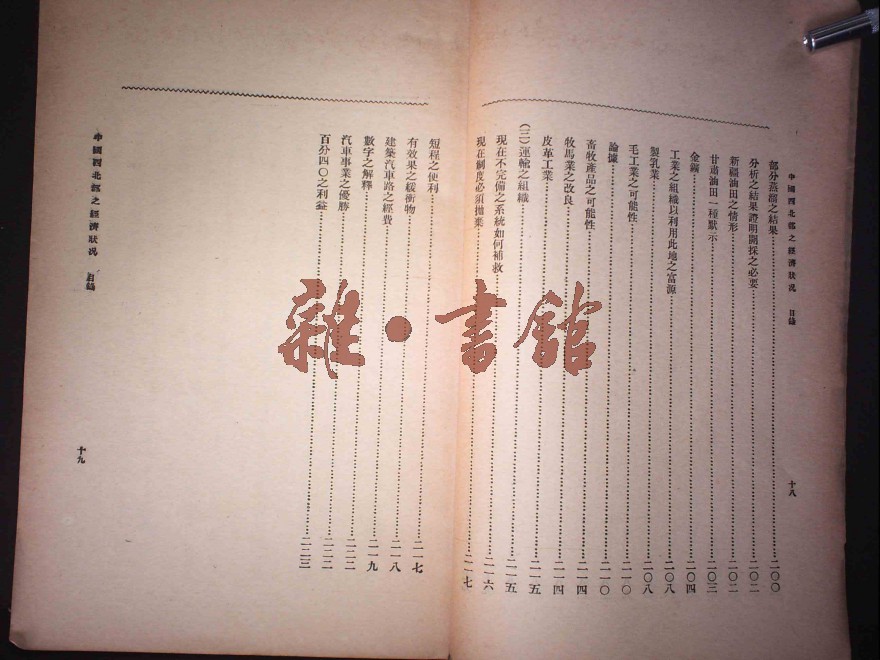 中國西北部之經濟狀况 目錄
十八
部分蒸溜之結果 二〇〇
分析之結果證明開採之必要 二〇二
新疆油田之情形 二〇二
甘肅油田一種默示 二〇三
金鑛 二〇四
工業之組織以利用此地之富源 二〇八
製乳業 二〇八
毛工業之可能性 二一〇
論據 二一〇
畜牧產品之可能性 二一四
牧馬業之改良 二一四
皮革工業 二一五
(三)運輸之組織 二一五
現在不完備之系統如何補救 二一六
現在制度必須拋棄 二一七
短程之便利 二一七
有效果之緩衝物 二一八
建築汽車路之經費 二一九
數字之解釋 二二二
汽車事業之優勝 二二二
百分四〇之利益 二二三
中國西北部之經濟狀况 目錄
十九
雜·書館